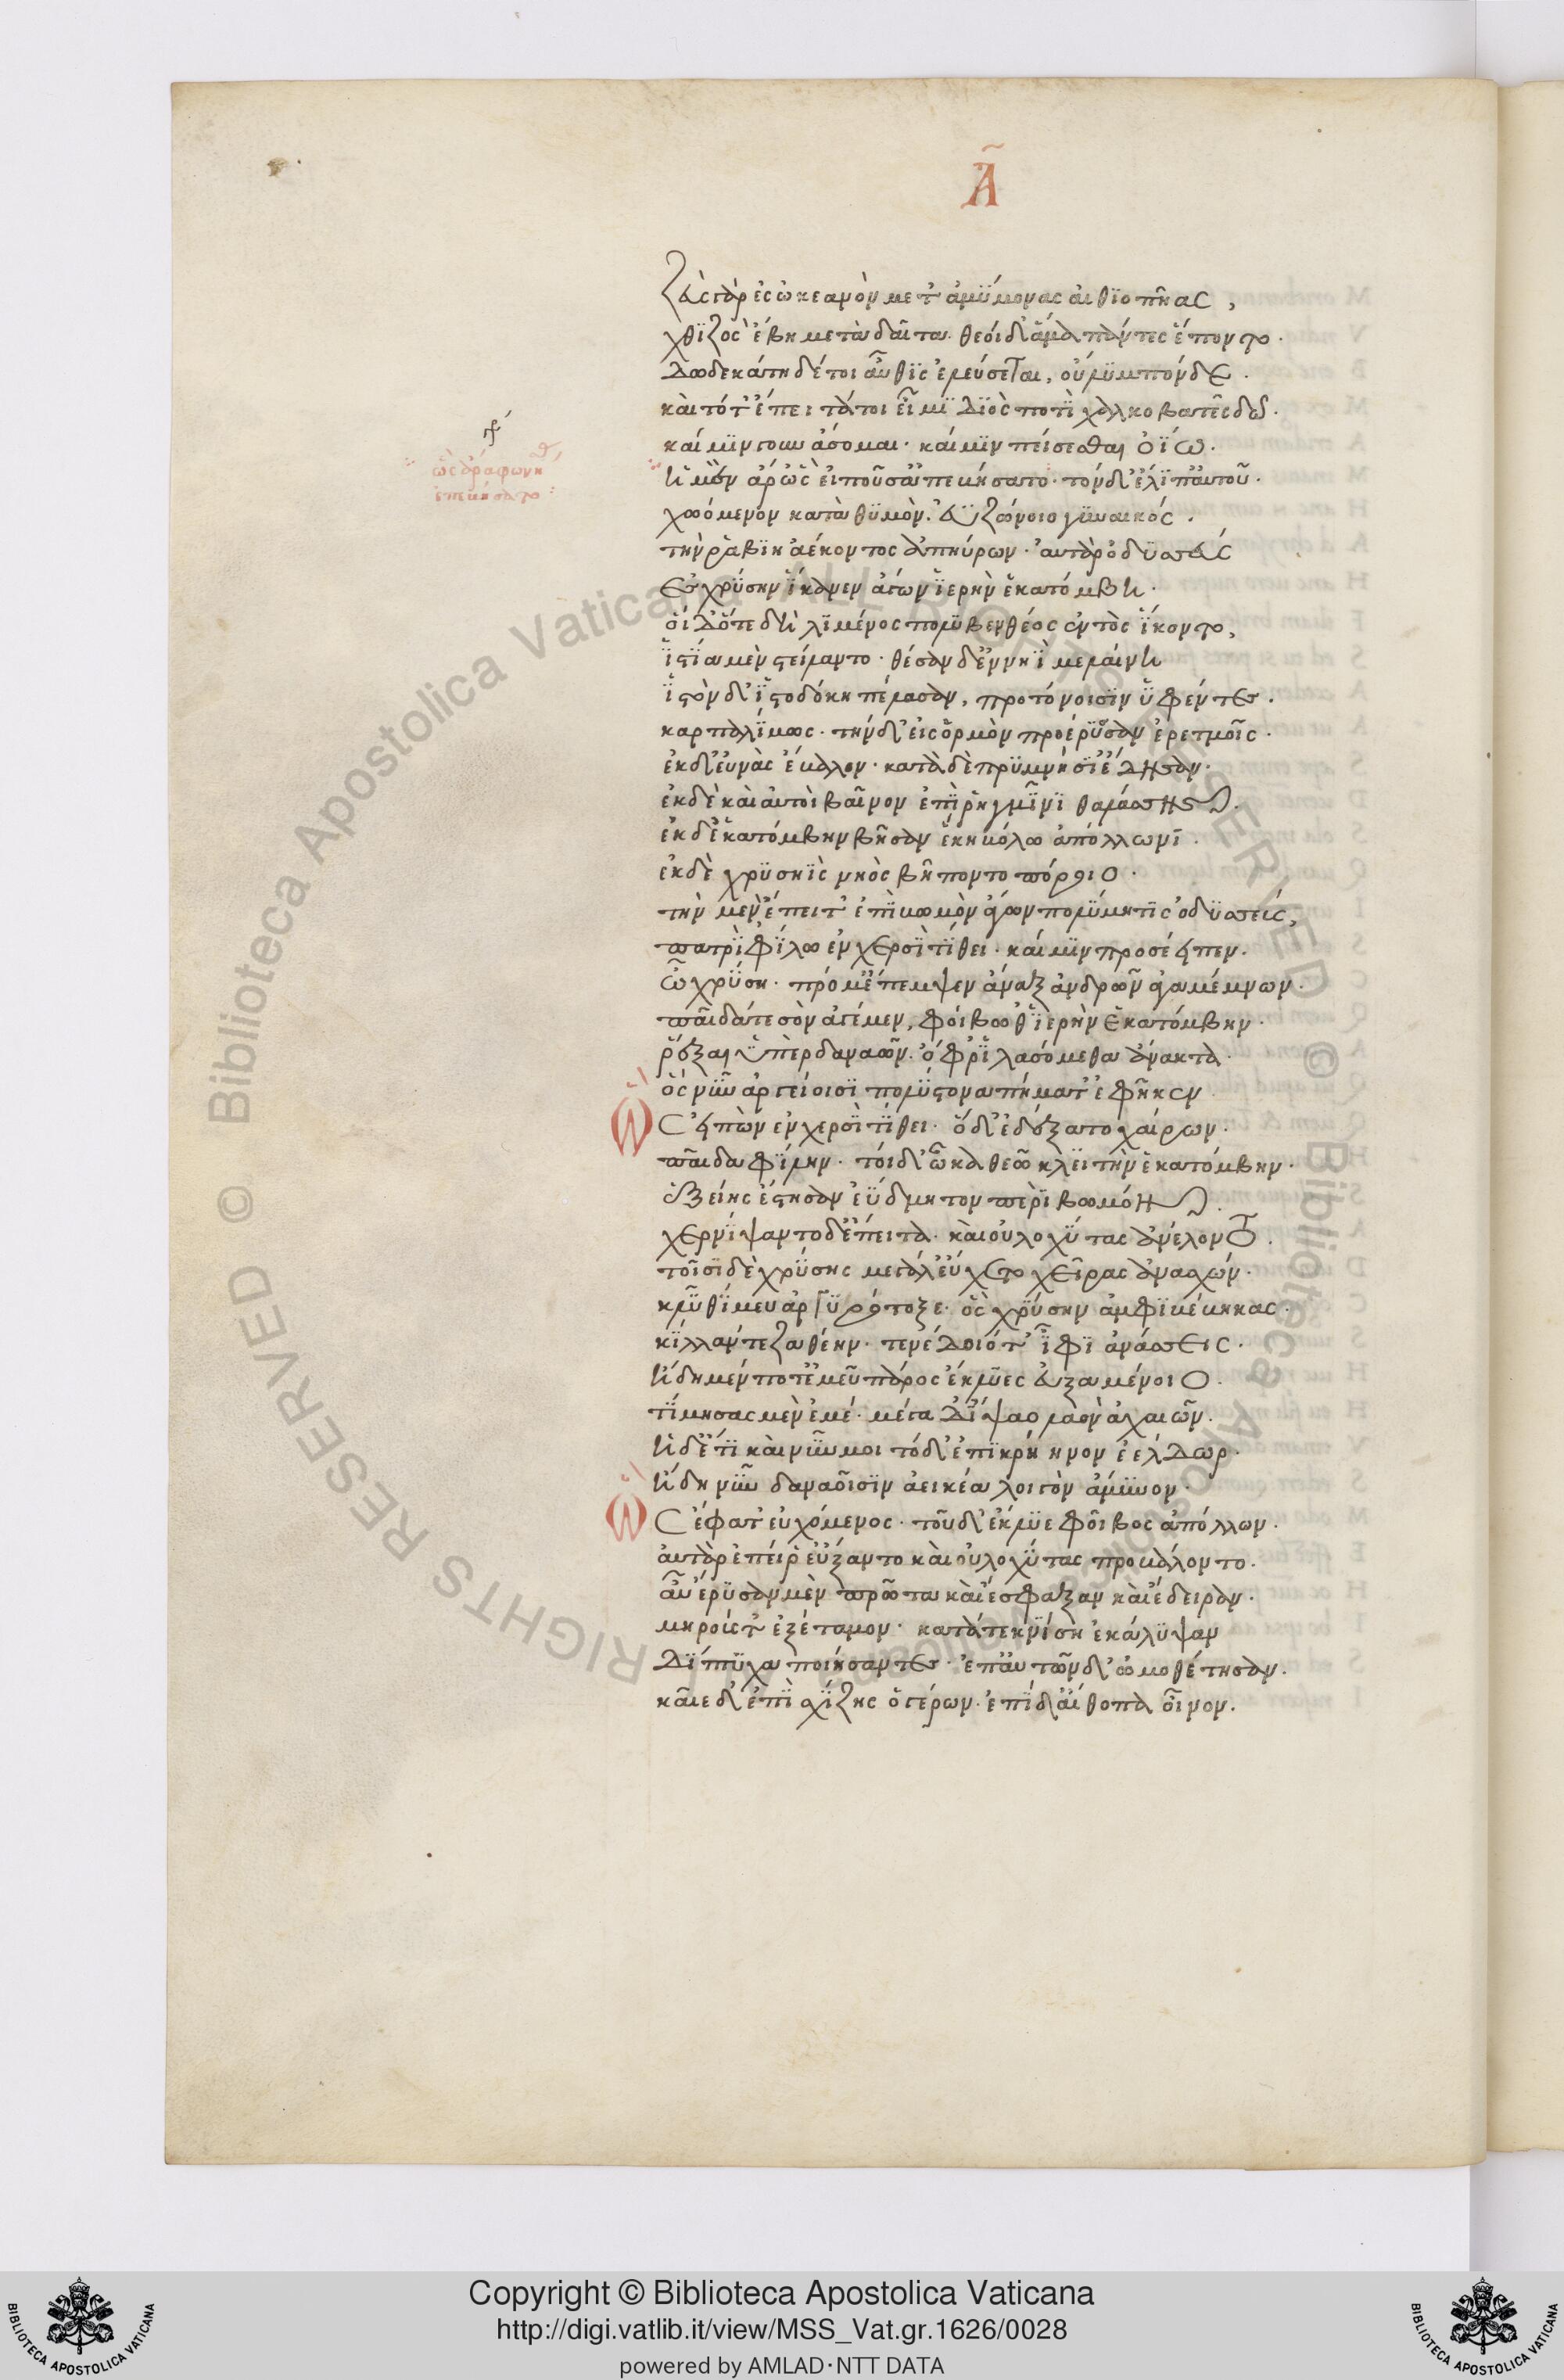 Α
Ζεὺς γὰρ ἐς ὠκεανὸν μετ' ἀμύμονας αἰθιοπῆας,
χθιζὸς ἔβη μετὰ δαῖτα· θεοὶ δ' ἅμα πάντες ἕποντο·
δωδεκάτη δέ τοι αὖθις ἐλεύσεται, οὐλυμπόνδε·
καὶ τότ' ἔπειτά τοι εἶμι διὸς ποτὶ χαλκοβατὲς δῶ·
καί μιν γουνάσομαι· καί μιν πείσεσθαι ὀΐω·
ἡ μὲν ἄρ' ὣς εἰποῦσ' ἀπεβήσατο· τὸν δ' ἔλιπ' αὐτοῦ·
γρ
ὣς ἄρα φωνή
ἀπεβήσατο
χωόμενον κατὰ θυμὸν ἐϋζώνοιο γυναικός·
τήν ῥα βίη ἀέκοντος ἀπηύρων· αὐτὰρ ὀδυσσεὺς
ἐς χρύσην ἵκανεν ἄγων ἱερὴν ἑκατόμβην·
οἱ δ' ὅτε δὴ λιμένος πολυβενθέος ἐντὸς ἵκοντο,
ἱστία μὲν στείλαντο· θέσαν δ' ἐν νηῒ μελαίνη
ἱστὸν δ' ἱστοδόκη πέλασαν, προτόνοισιν ὑφέντες·
καρπαλίμως· τὴν δ' εἰς ὅρμον προέρυσσαν ἐρετμοῖς·
ἐκ δ' εὐνὰς ἔβαλον· κατὰ δὲ πρυμνήσι' ἔδησαν·
ἐκ δὲ καὶ αὐτοὶ βαῖνον ἐπὶ ῥηγμῖνι θαλάσσης·
ἐκ δ' ἑκατόμβην βῆσαν ἑκηβόλω ἀπόλλωνι·
ἐκ δὲ χρυσηῒς νηὸς βῆ ποντοπόροιο·
τὴν μὲν ἔπειτ' ἐπὶ βωμὸν ἄγων πολύμητις ὀδυσσεύς,
πατρὶ φίλω ἐν χερσὶ τίθει· καί μιν προσέειπεν·
ὦ χρύση· πρό μ' ἔπεμψεν ἄναξ ἀνδρῶν ἀγαμέμνων·
παῖδά τε σὸν ἀγέμεν, φοίβω θ' ἱερὴν ἑκατόμβην·
ῥέξαι ὑπὲρ δαναῶν· ὄφρ' ἱλασόμεθα ἄνακτα·
ὃς νῦν ἀργείοισι πολύστονα πήματ' ἐφῆκεν
Ὣς εἰπὼν ἐν χερσὶ τίθει· ὁ δ' ἐδέξατο χαίρων·
παῖδα φίλην· τοὶ δ' ὦκα θεῶ κλειτὴν ἑκατόμβην·
ἑξείης ἔστησαν ἐΰδμητον περὶ βωμόν·
χερνίψαντο δ' ἔπειτα· καὶ οὐλοχύτας ἀνέλοντο·
τοῖσι δὲ χρύσης μεγάλ' εὔχετο χεῖρας ἀνασχών·
κλῦθί μευ ἀργυρότοξε· ὃς χρύσην ἀμφιβέβηκας·
κίλλαν τε ζαθέην· τενέδοιό τ' ἶφι ἀνάσσεις·
ἤδη μέν ποτ' ἐμεῦ πάρος ἔκλυες εὐξαμένοιο·
τίμησας μὲν ἐμέ· μέγα δ' ἴψαο λαὸν ἀχαιῶν·
ἠδ' ἔτι καὶ νῦν μοι τόδ' ἐπικρήηνον ἐέλδωρ·
ἤδη νῦν δαναοῖσιν ἀεικέα λοιγὸν ἄμυνον·
Ὣς ἔφατ' εὐχόμενος· τοῦ δ' ἔκλυε φοῖβος ἀπόλλων·
αὐτὰρ ἐπεί ῥ' εὔξαντο καὶ οὐλοχύτας προβάλοντο·
αὖ ἔρυσαν μὲν πρῶτα καὶ ἔσφαξαν καὶ ἔδειραν·
μηρούς τ' ἐξέταμον· κατά τε κνίση ἐκάλυψαν
δίπτυχα ποιήσαντες· ἐπ' αὐτῶν δ' ὠμοθέτησαν·
καῖε δ' ἐπὶ σχίζης ὁ γέρων· ἐπὶ δ' αἴθοπα οἶνον·
© Biblioteca Apostolica Vaticana ALL RIGHTS RESERVED
© Biblioteca Apostolica Vaticana ALL RIGHTS RESERVED
Copyright © Biblioteca Apostolica Vaticana
http://digi.vatlib.it/view/MSS_Vat.gr.1626/0028
powered by AMLAD·NTT DATA
BIBLIOTECA APOSTOLICA VATICANA
BIBLIOTECA APOSTOLICA VATICANA